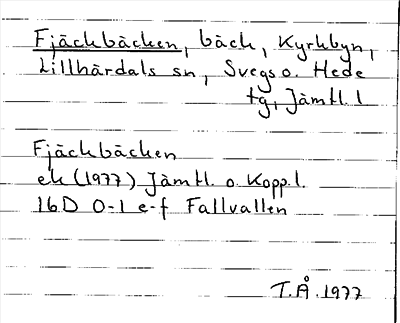 Fjäckbäcken, bäck, Kyrkbyn,
Lillhärdals sn, Svegs o. Hede
tg, Jämtl. l
Fjäckbäcken
ek (1977) Jämtl. o. Kopp. l.
16D 0-1 e-f Fallvallen
T.Å. 1977